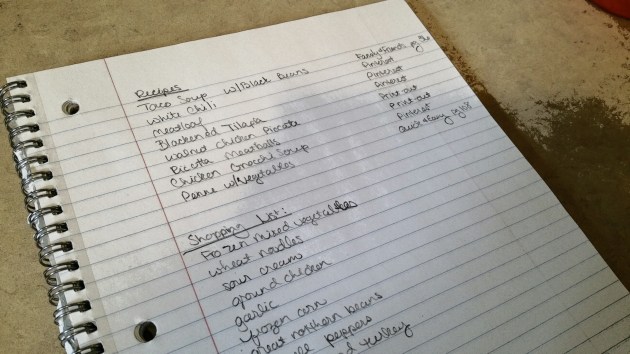 Recipes
Taco Soup w/Black Beans Family & Friends pg
White Chili Pinterest
Meatloaf Pinterest
Blackened Tilapia Pinterest
Walnut Chicken Picatta Print out
Ricotta Meatballs Print out
Chicken Gnocchi Soup Pinterest
Penne w/vegetables Quick & Easy pg
Shopping List:
Frozen mixed vegetables
wheat noodles
sour cream
ground chicken
garlic
frozen corn
great northern beans
peppers
turkey